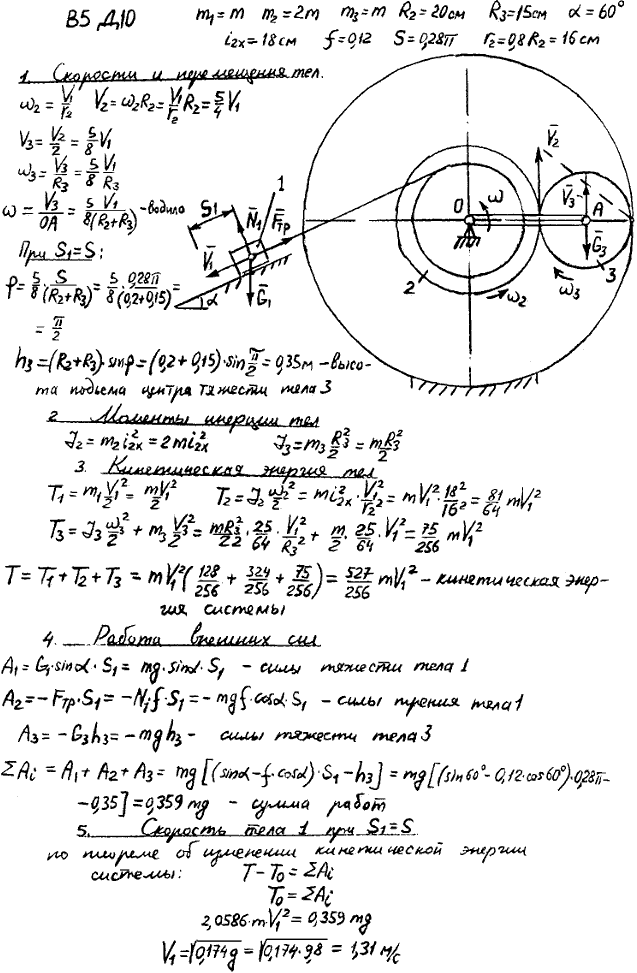 В5 Д10 m₁=m m₂=2m m₃=m R₂=20см R₃=15см α=60°
i₂ₓ=18см f=0,12 S=0,28π r₂=0,8R₂=16см
1. Скорости и перемещения тел.
ω₂=V₁/r₂ V₂=ω₂R₂=V₁/r₂ R₂=5/4 V₁
V₃=V₂/2=5/8 V₁
ω₃=V₃/R₃=5/8 V₁/R₃
ω=V₃/OA=5/8 V₁/(R₂+R₃) -водило
При S₁=S:
φ=5/8·S/(R₂+R₃)=5/8·0,28π/(0,2+0,15)=
=π/2
S1 N̄₁ 1 F̄тр V̄₁ Ḡ₁ α
O ω A V̄₂ V̄₃ Ḡ₃ 3 ω₃ 2 ω₂
h₃=(R₂+R₃)·sinφ=(0,2+0,15)·sin π/2=0,35м -высо-
та подъема центра тяжести тела 3
2 Моменты инерции тел
J₂=m₂i₂ₓ²=2mi₂ₓ² J₃=m₃R₃²/2=mR₃²/2
3. Кинетическая энергия тел
T₁=m₁V₁²/2=mV₁²/2 T₂=J₂ω₂²/2=mi₂ₓ²·V₁²/r₂²=mV₁²·18²/16²=81/64 mV₁²
T₃=J₃ω₃²/2+m₃V₃²/2=mR₃²/2·2·25/64·V₁²/R₃²+m/2·25/64·V₁²=75/256 mV₁²
T=T₁+T₂+T₃=mV₁²(128/256+324/256+75/256)=527/256 mV₁² -кинетическая энер-
гия системы
4. Работа внешних сил
A₁=G₁·sinα·S₁=mg·sinα·S₁ - силы тяжести тела 1
A₂=-Fтр·S₁=-N₁f·S₁=-mgf·cosα·S₁ -силы трения тела 1
A₃=-G₃h₃=-mgh₃- силы тяжести тела 3
ΣAi=A₁+A₂+A₃=mg[(sinα-f·cosα)·S₁-h₃]=mg[(sin60°-0,12·cos60°)·0,28π-
-0,35]=0,359mg - сумма работ
5. Скорость тела 1 при S₁=S
по теореме об изменении кинетической энергии
системы: T-T₀=ΣAi
T₀=ΣAi
2,0586·mV₁²=0,359mg
V₁=√0,174g=√0,174·9,8=1,31 м/с